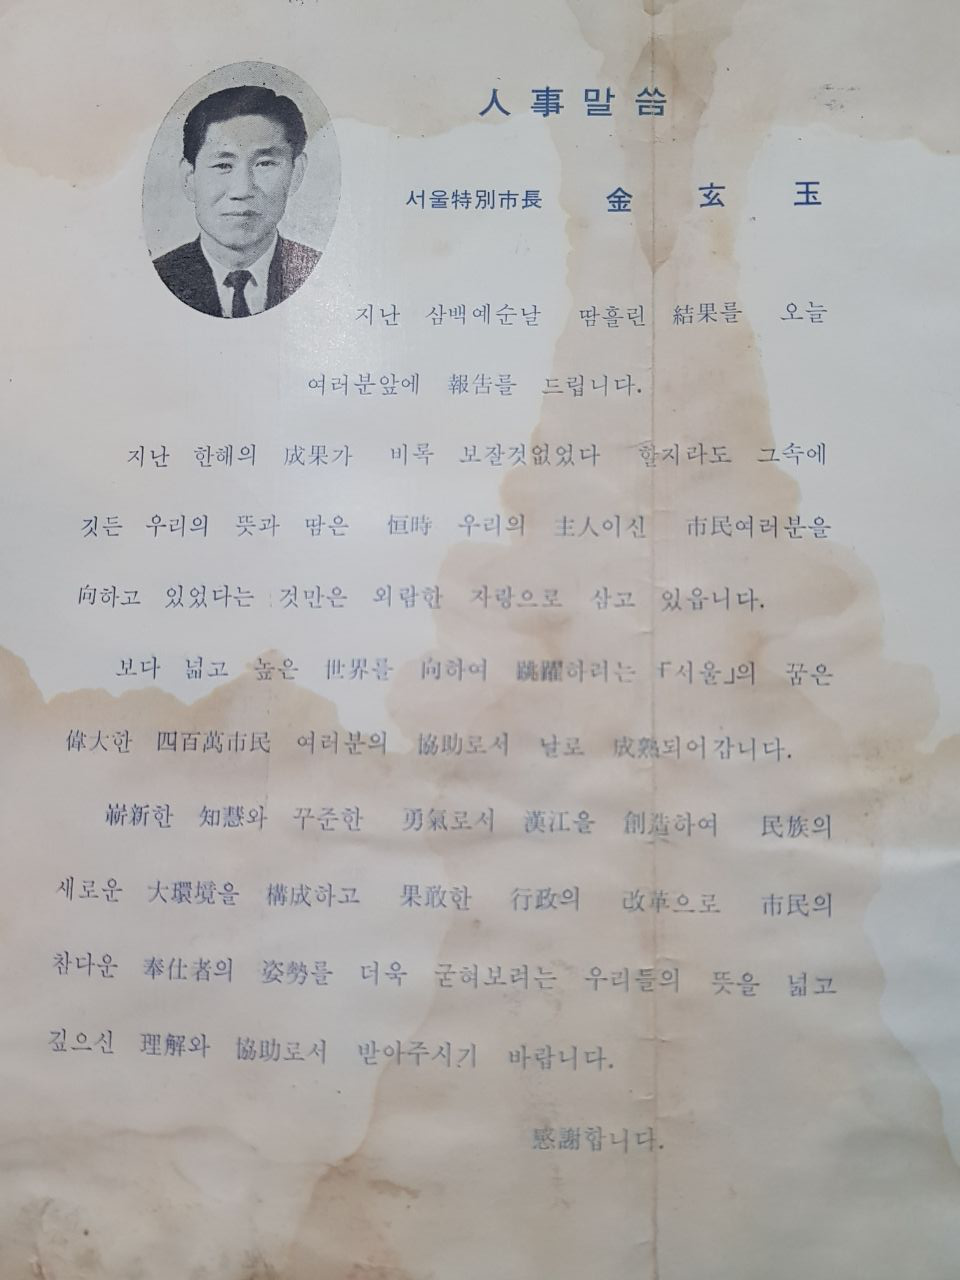 人事말씀
서울特別市長 金玄玉
지난 삼백예순날 땀흘린 結果를 오늘
여러분앞에 報告를 드립니다.
지난 한해의 成果가 비록 보잘것없었다 할지라도 그속에
깃든 우리의 뜻과 땀은 恒時 우리의 主人이신 市民여러분을
向하고 있었다는 것만은 외람한 자랑으로 삼고 있읍니다.
보다 넓고 높은 世界를 向하여 跳躍하려는 「서울」의 꿈은
偉大한 四百萬市民 여러분의 協助로서 날로 成熟되어갑니다.
嶄新한 知慧와 꾸준한 勇氣로서 漢江을 創造하여 民族의
새로운 大環境을 構成하고 果敢한 行政의 改革으로 市民의
참다운 奉仕者의 姿勢를 더욱 굳혀보려는 우리들의 뜻을 넓고
깊으신 理解와 協助로서 받아주시기 바랍니다.
感謝합니다.